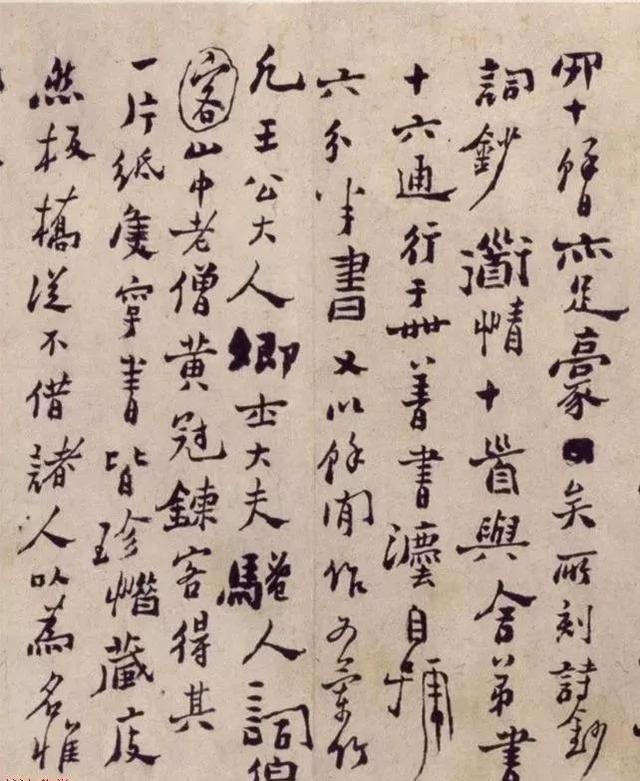 十餘日亦足豪矣所刻詩鈔
詞鈔道情十首與舍弟書
十六通行于世善書灋自號
六分半書又以餘閒作為蘭竹
凡王公大人卿士大夫騷人詞伯
客山中老僧黃冠鍊客得其
一片紙隻字書皆珍惜藏庋
然板橋從不借諸人以為名惟